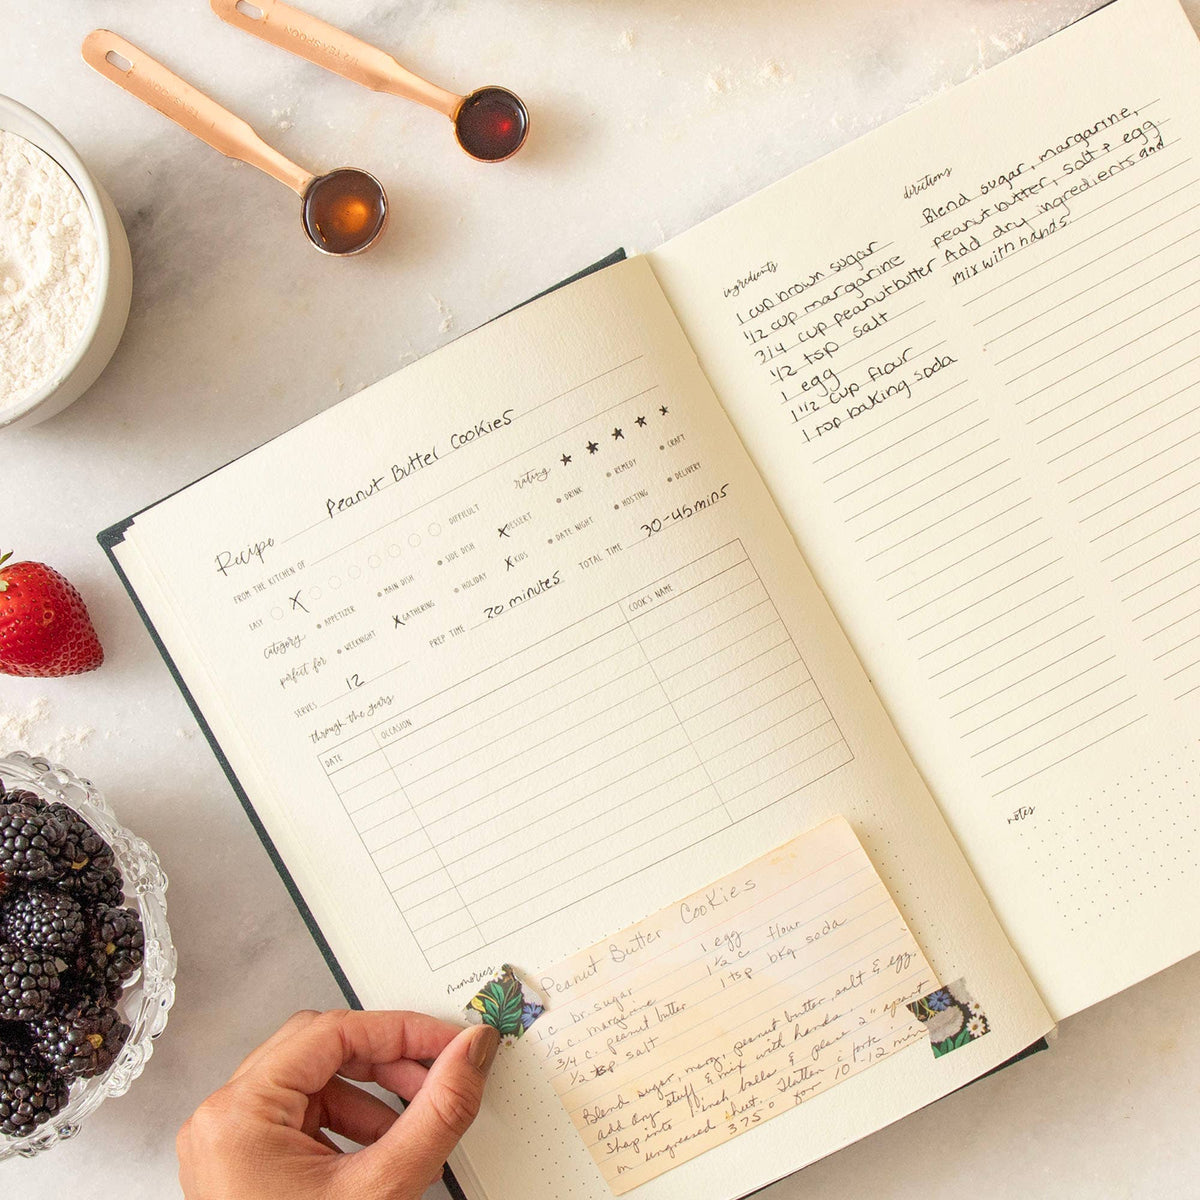 1/2 TEASPOON
TEASPOON
Recipe Peanut Butter Cookies
FROM THE KITCHEN OF
rating ★ ★ ★ ★ ★
EASY X DIFFICULT
category • APPETIZER • MAIN DISH • SIDE DISH X DESSERT • DRINK • REMEDY • CRAFT
perfect for • WEEKNIGHT X GATHERING • HOLIDAY X KIDS • DATE NIGHT • HOSTING • DELIVERY
SERVES 12 PREP TIME 20 minutes TOTAL TIME 30-45 mins
through the years
DATE OCCASION COOK'S NAME
memories
Peanut Butter Cookies
1 c br. sugar
1/2 c. margarine
3/4 c. peanut butter
1/2 tsp. salt
1 egg
1 1/2 c flour
1 tsp bkg soda
Blend sugar, marg, peanut butter, salt & egg.
add dry stuff & mix with hands.
Shap into 1 inch balls & place 2" apart
on ungreased sheet. Flatten c fork.
375° for 10-12 min
ingredients
1 cup brown sugar
1/2 cup margarine
3/4 cup peanut butter
1/2 tsp salt
1 egg
1 1/2 cup flour
1 tsp baking soda
directions
Blend sugar, margarine,
peanut butter, salt & egg.
Add dry ingredients and
mix with hands.
notes